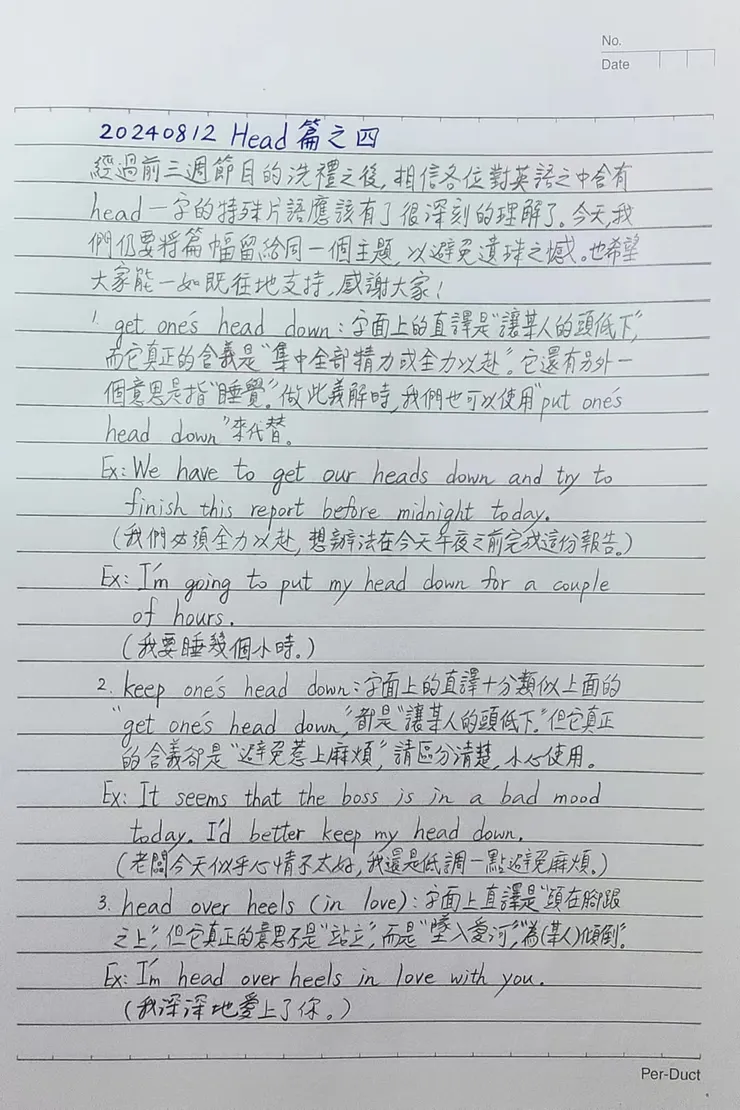 No.
Date
20240812 Head 篇之四
經過前三週節目的洗禮之後,相信各位對英語之中含有
head一字的特殊片語應該有了很深刻的理解了。今天,我
們仍要將篇幅留給同一個主題,以避免遺珠之憾。也希望
大家能一如既往地支持,感謝大家!
1. get one's head down:字面上的直譯是"讓某人的頭低下",
而它真正的含義是"集中全部精力或全力以赴"。它還有另外一
個意思是指"睡覺"。做此義解時,我們也可以使用"put one's
head down"來代替。
Ex: We have to get our heads down and try to
finish this report before midnight today.
(我們必須全力以赴,想辦法在今天午夜之前完成這份報告。)
Ex: I'm going to put my head down for a couple
of hours.
(我要睡幾個小時。)
2. keep one's head down:字面上的直譯十分類似上面的
"get one's head down,"都是"讓某人的頭低下。"但它真正
的含義卻是"避免惹上麻煩",請區分清楚,小心使用。
Ex: It seems that the boss is in a bad mood
today. I'd better keep my head down.
(老闆今天似乎心情不太好,我還是低調一點避免麻煩。)
3. head over heels (in love):字面上直譯是"頭在腳跟
之上",但它真正的意思不是"站立",而是"墜入愛河""為(某人)傾倒"。
Ex: I'm head over heels in love with you.
(我深深地愛上了你。)
Per-Duct